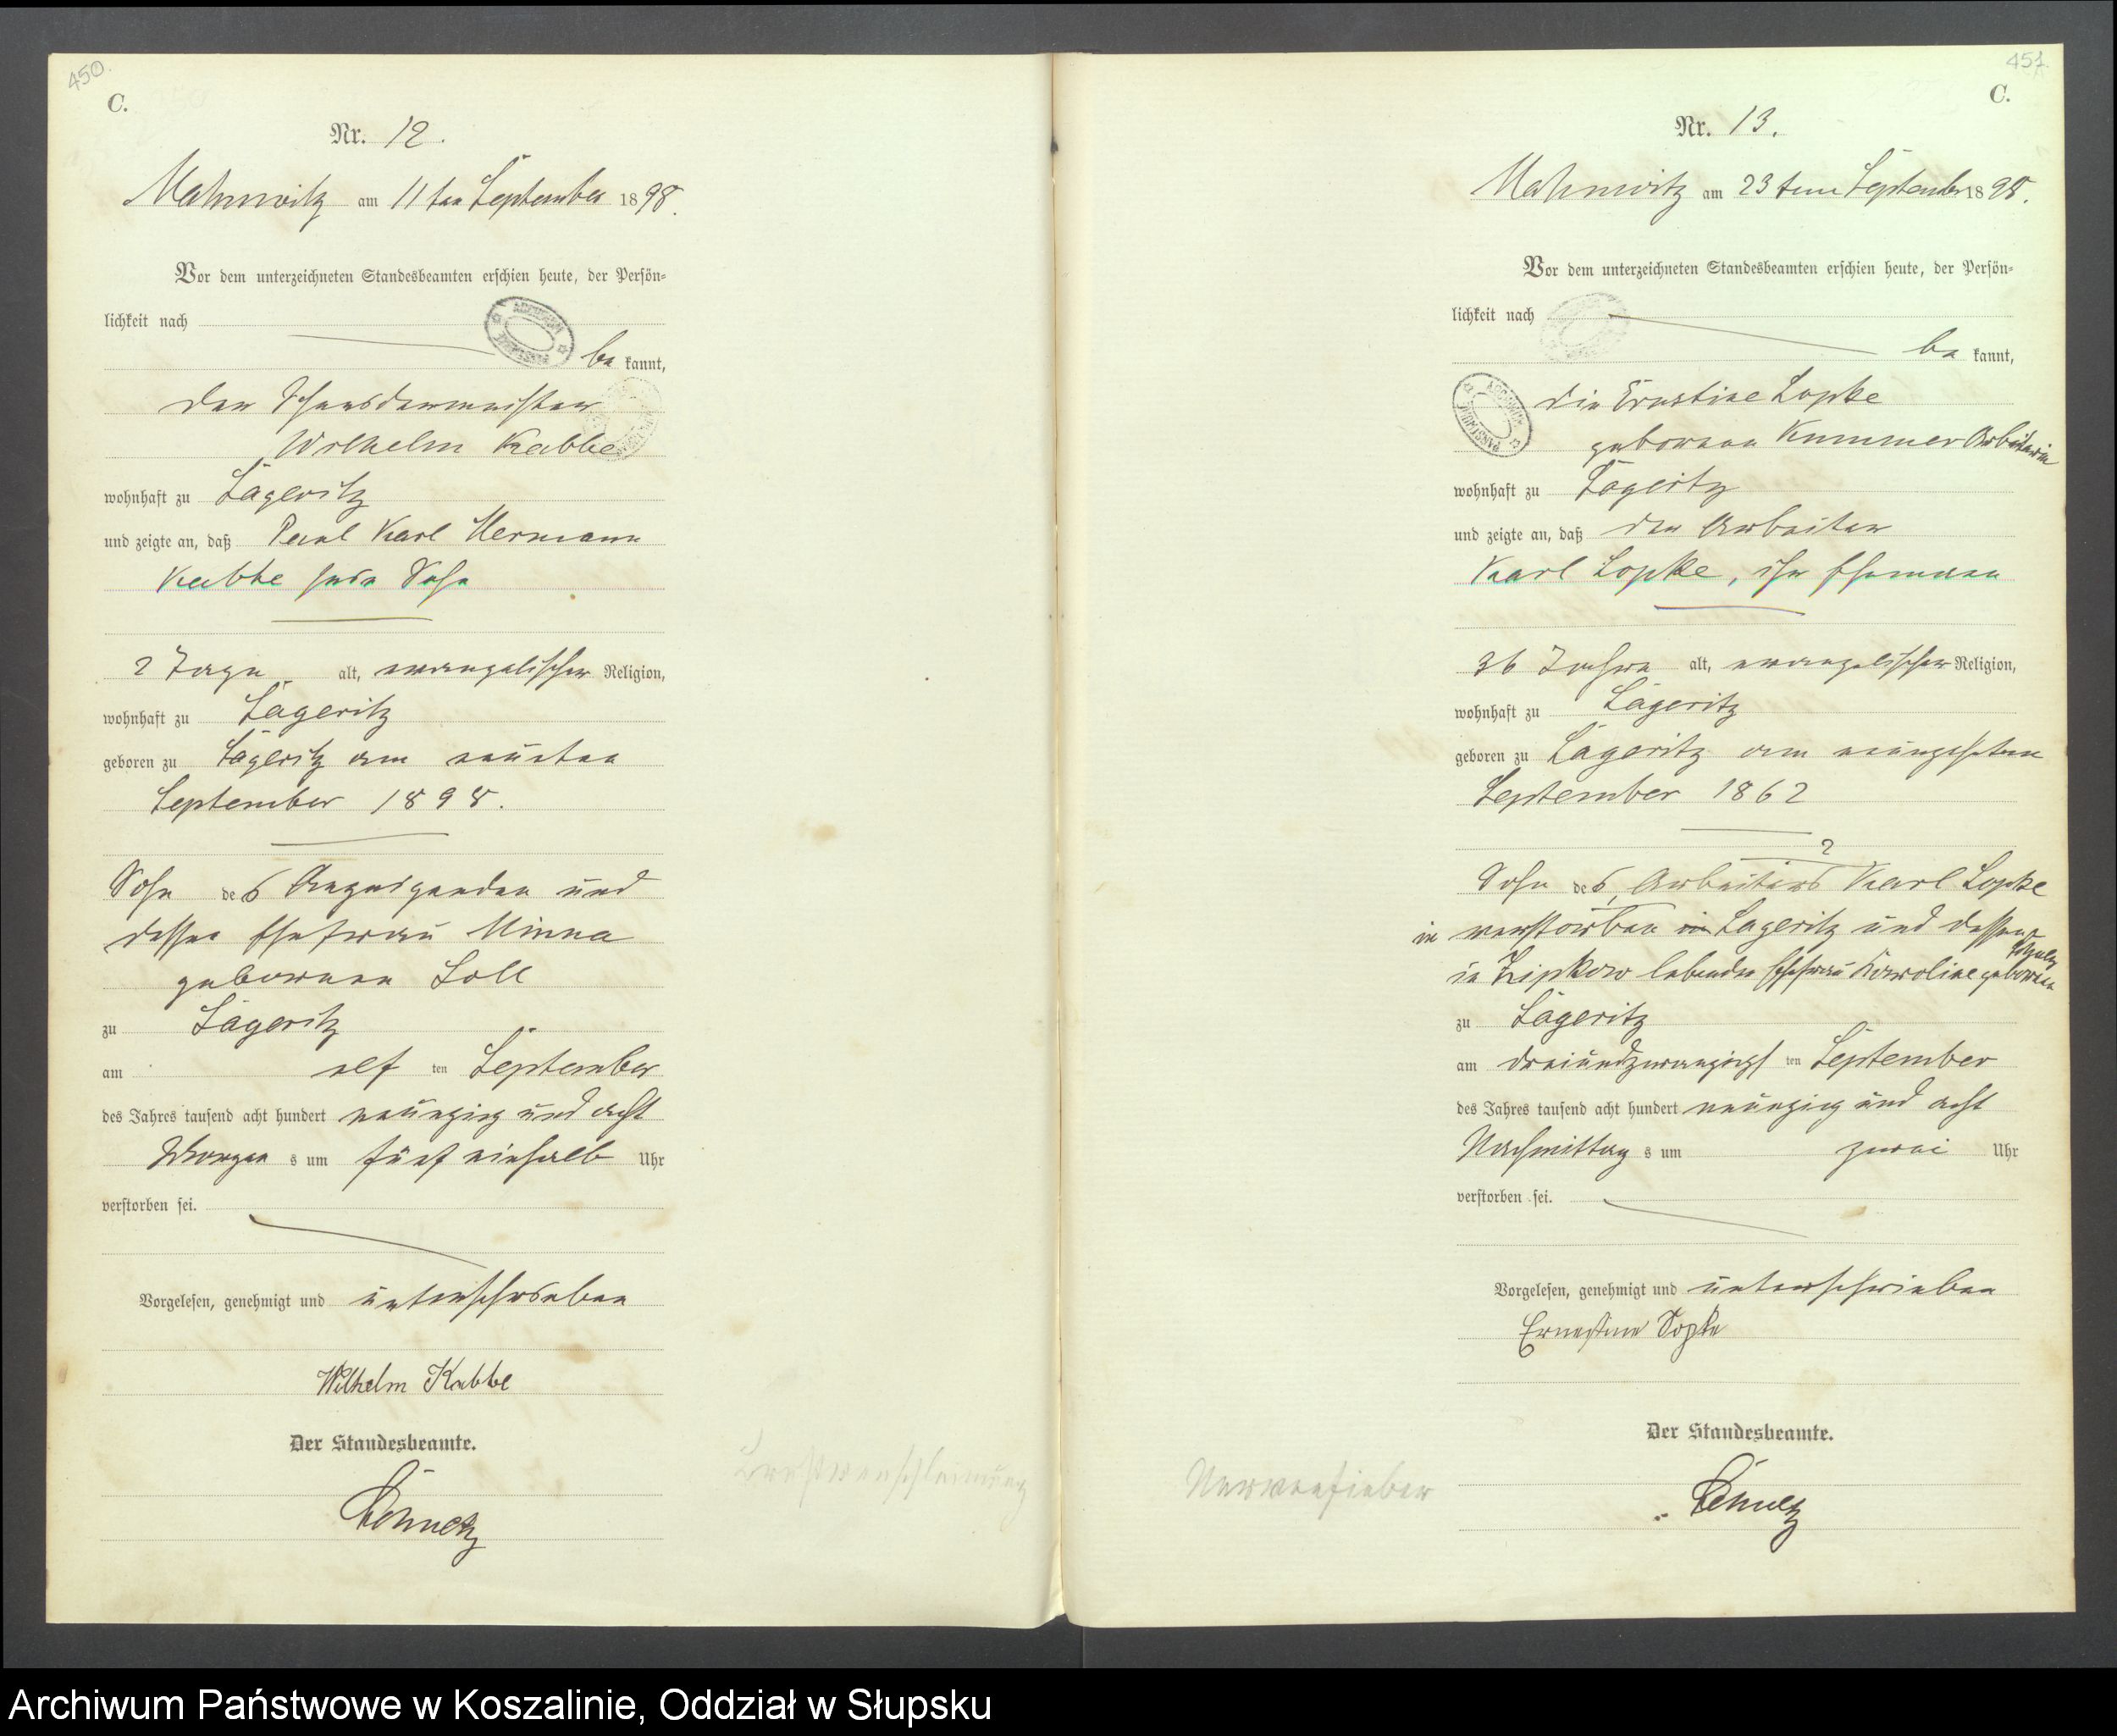 450.
C.
Nr. 12.
Mahnwitz am 11 ten September 1898.
Vor dem unterzeichneten Standesbeamten erschien heute, der Persön=
lichkeit nach
be kannt,
der
Wilhelm Kabbe
wohnhaft zu Lägeritz
und zeigte an, daß Paul Karl Hermann
Kabbe sein Sohn
2 Tage alt, evangelischer Religion,
wohnhaft zu Lägeritz
geboren zu Lägeritz am neunten
September 1898.
Sohn des Anzeigenden und
dessen Ehefrau Minna
geborenen Soll
zu Lägeritz
am elf ten September
des Jahres tausend acht hundert neunzig und acht
Morgen s um fünf einhalb Uhr
verstorben sei.
Vorgelesen, genehmigt und unterschrieben
Wilhelm Kabbe
Der Standesbeamte.
451.
C.
Nr. 13.
Mahnwitz am 23 ten September 1898.
Vor dem unterzeichneten Standesbeamten erschien heute, der Persön=
lichkeit nach
be kannt,
die Ernstine Lopke
geborene Kummer Arbeiterin
wohnhaft zu Lägeritz
und zeigte an, daß der Arbeiter
Karl Lopke, ihr Ehemann
36 Jahre alt, evangelischer Religion,
wohnhaft zu Lägeritz
geboren zu Lägeritz am neunzehnten
September 1862
2
Sohn des Arbeiters Karl Lopke
in verstorben in Lägeritz und dessen
in Zipkow lebenden Ehefrau Karoline geborenen
zu Lägeritz
am dreiundzwanzigs ten September
des Jahres tausend acht hundert neunzig und acht
Nachmittag s um zwei Uhr
verstorben sei.
Vorgelesen, genehmigt und unterschrieben
Ernestine Lopke
Der Standesbeamte.
Nervenfieber
Archiwum Państwowe w Koszalinie, Oddział w Słupsku